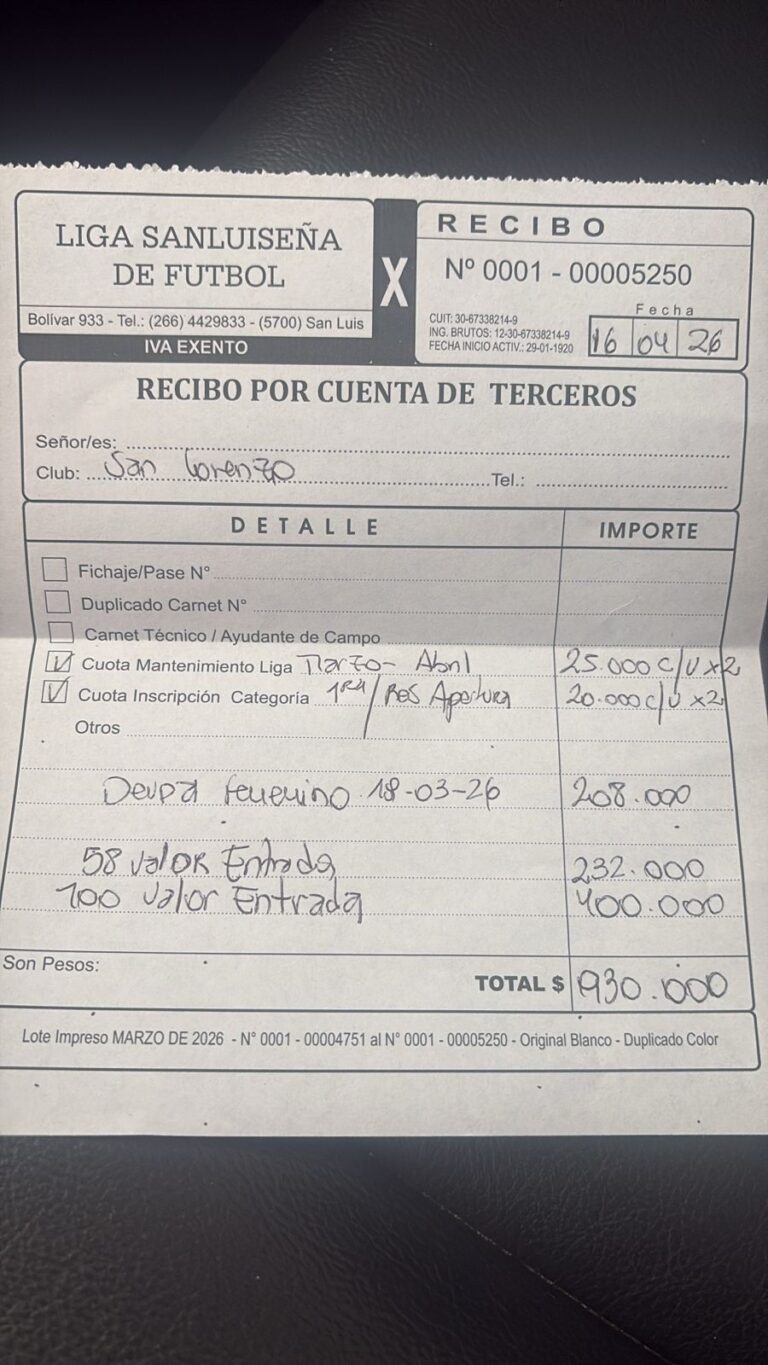 LIGA SANLUISEÑA
DE FUTBOL
Bolívar 933 - Tel.: (266) 4429833 - (5700) San Luis
IVA EXENTO
X
RECIBO
Nº 0001 - 00005250
Fecha
CUIT: 30-67338214-9
ING. BRUTOS: 12-30-67338214-9
FECHA INICIO ACTIV.: 29-01-1920
16 04 26
RECIBO POR CUENTA DE TERCEROS
Señor/es:
Club: San Lorenzo Tel.:
DETALLE IMPORTE
Fichaje/Pase N°
Duplicado Carnet N°
Carnet Técnico / Ayudante de Campo
Cuota Mantenimiento Liga Marzo - Abril 25.000 c/u x2
Cuota Inscripción Categoría 1RA/Res Apertura 20.000 c/u x2
Otros
Deuda femenino 18-03-26 208.000
58 valor Entrada 232.000
100 valor Entrada 400.000
Son Pesos:
TOTAL $ 930.000
Lote Impreso MARZO DE 2026 - N° 0001 - 00004751 al N° 0001 - 00005250 - Original Blanco - Duplicado Color